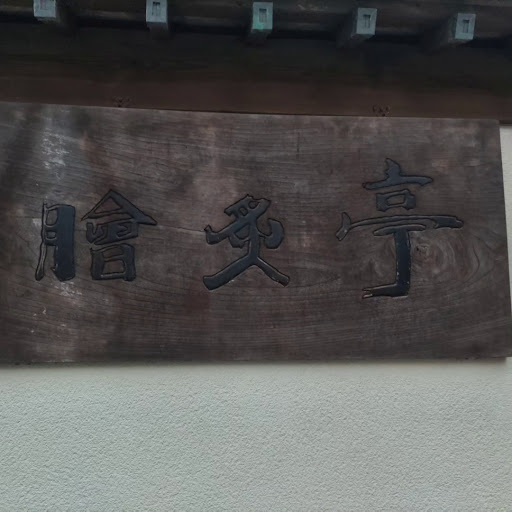 膾炙亭